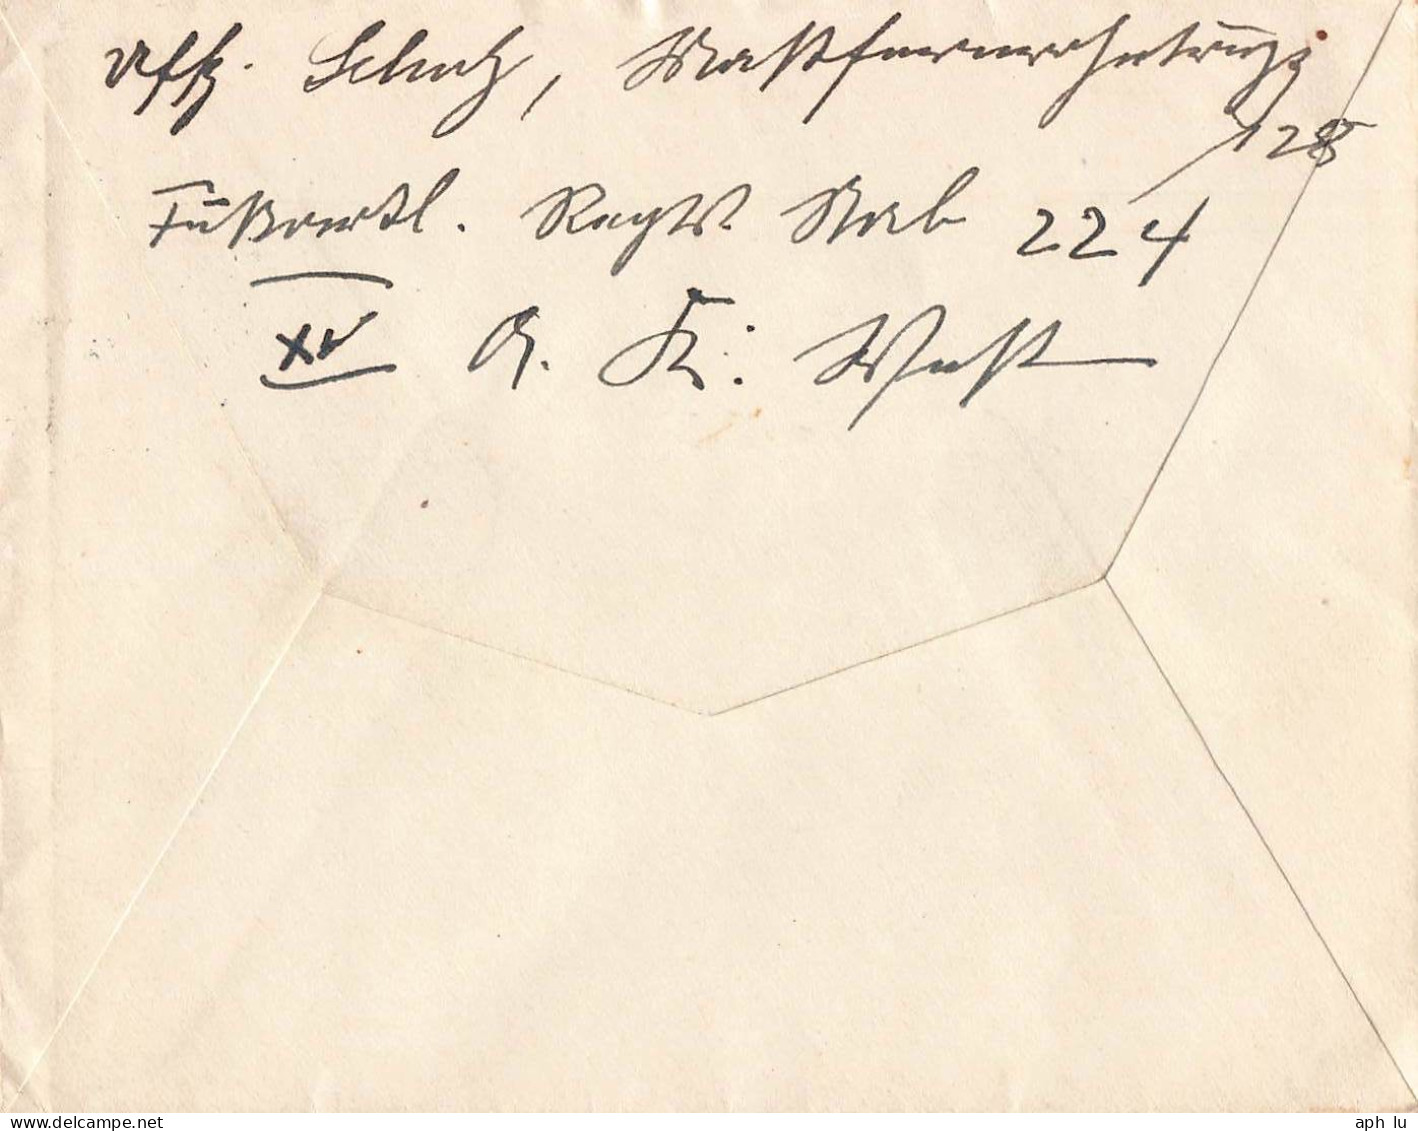 Uffz. Schulz, Mastfernrohrtrupp
128
Fußartl. Regts. Stab 224
XV A. K. West
www.delcampe.net
aph lu